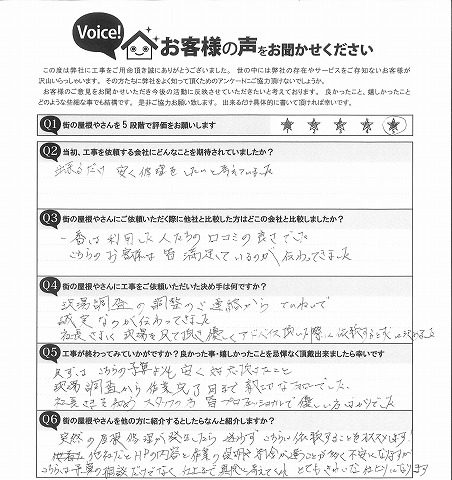 Voice!
お客様の声をお聞かせください
この度は弊社に工事をご用命頂き誠にありがとうございました。 世の中には弊社の存在やサービスをご存知ないお客様が
沢山いらっしゃいます。その方たちに弊社をよく知って頂くためのアンケートにご協力頂けないでしょうか。
お客様のご意見をお聞かせいただき今後の活動に反映させていただきたいと考えております。 良かったこと、嬉しかったこと
どのような些細な事でも結構です。 是非ご協力お願い致します。 出来るだけ具体的に書いて頂ければ幸いです。
Q1 街の屋根やさんを5段階で評価をお願いします
Q2 当初、工事を依頼する会社にどんなことを期待されていましたか?
出来るだけ 安く修理をしたいと考えていました
Q3 街の屋根やさんにご依頼いただく際に他社と比較した方はどこの会社と比較しましたか?
一番は利用した人たちの口コミの良さでした
こちらのお客様は皆満足しているのが伝わってきました
Q4 街の屋根やさんに工事をご依頼いただいた決め手は何ですか?
現場調査の調整のご連絡から ていねいで
誠実なのが伝わってきました
社長さまに 現場を見て頂き 優しくアドバイス頂いた際に 依頼すること
Q5 工事が終わってみていかがですか?良かった事・嬉しかったことを忌憚なく頂戴出来ましたら幸いです
まずは こちらの予算よりも 安く 対応頂けたこと
現場調査から作業完了日まで 親切でていねいでした。
社長さまを初め スタッフの方 皆プロフェッショナルで優しい方ばかりでした
Q6 街の屋根やさんを他の方に紹介するとしたらなんと紹介しますか?
突然の屋根修理が発生したら 迷わず こちらに依頼することをオススメします!
他社だと HPの内容と作業の説明、料金が違うことが多く不安になりますが
こちらは 予算の相談だけでなく 仕上まで真剣に考えてくれ とてもきれいな仕上りになります